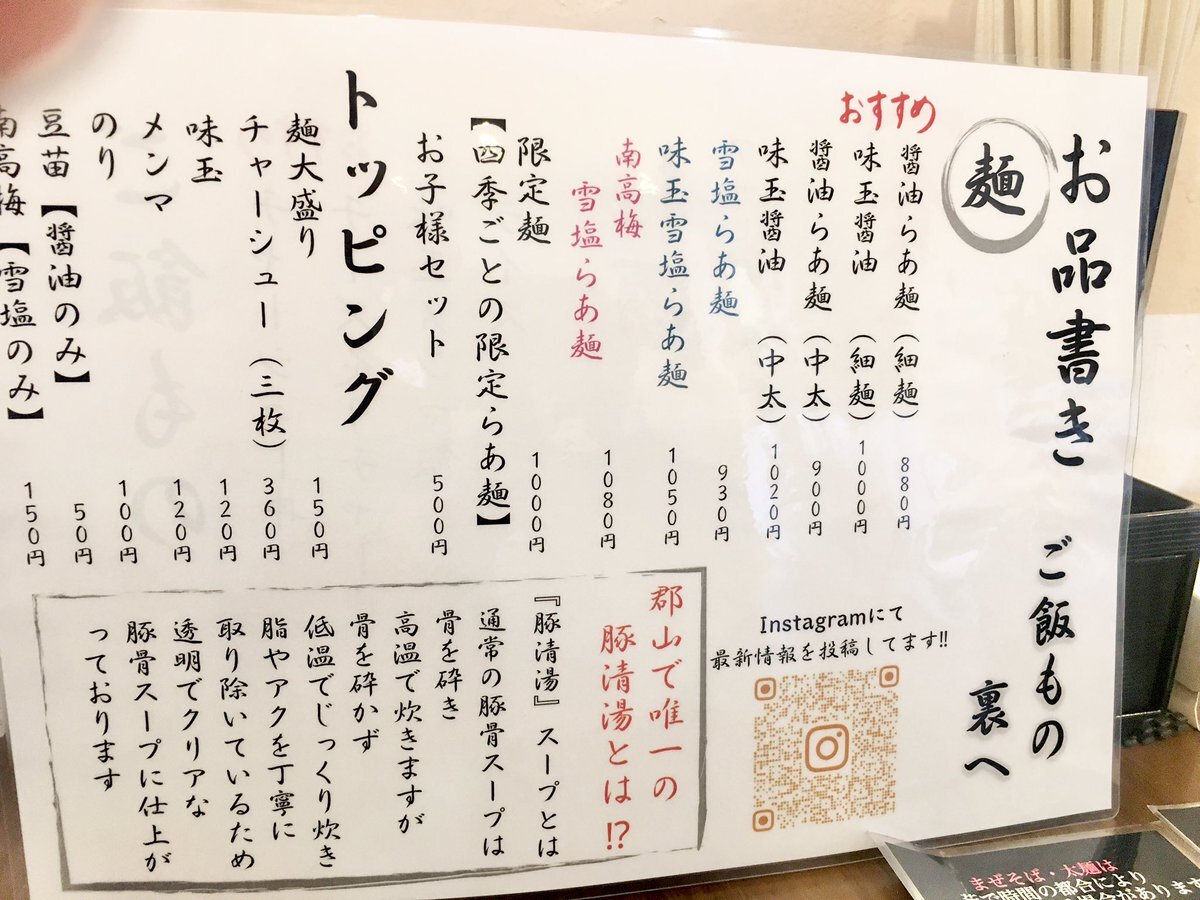 お品書き
ご飯もの
裏へ
麺
おすすめ
醤油らあ麺（細麺） 880円
味玉醤油（細麺） 1000円
醤油らあ麺（中太） 900円
味玉醤油（中太） 1020円
雪塩らあ麺 930円
味玉雪塩らあ麺 1050円
南高梅
雪塩らあ麺 1080円
限定麺 1000円
【四季ごとの限定らあ麺】
お子様セット 500円
トッピング
麺大盛り 150円
チャーシュー（三枚） 360円
味玉 120円
メンマ 120円
のり 100円
豆苗【醤油のみ】 50円
南高梅【雪塩のみ】 150円
Instagramにて
最新情報を投稿してます!!
郡山で唯一の
豚清湯とは!?
『豚清湯』スープとは
通常の豚骨スープは
骨を砕き
高温で炊きますが
骨を砕かず
低温でじっくり炊き
脂やアクを丁寧に
取り除いているため
透明でクリアな
豚骨スープに仕上が
っております
まぜそば・太麺は
時間の都合により
場合があります